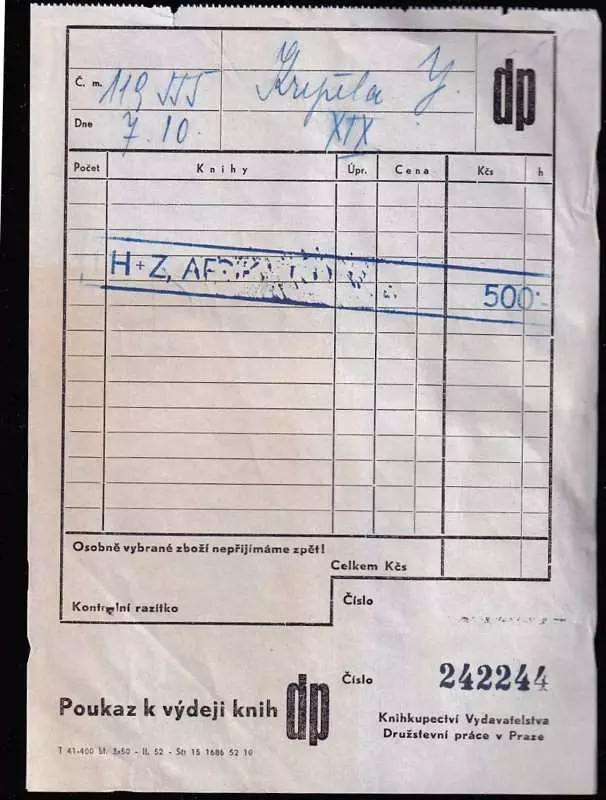 Č. m. 119 555 Krepela Y.
dp
Dne 7.10. XIX
Počet Knihy Úpr. Cena Kčs h
H+Z, 500:-
Osobně vybrané zboží nepřijímáme zpět!
Celkem Kčs
Kontrolní razítko
Číslo
Číslo 242244
Poukaz k výdeji knih dp
Knihkupectví Vydavatelstva
Družstevní práce v Praze
T 41-400 Sf. 3x50 - II. 52 - Sti 15 1686 52 10